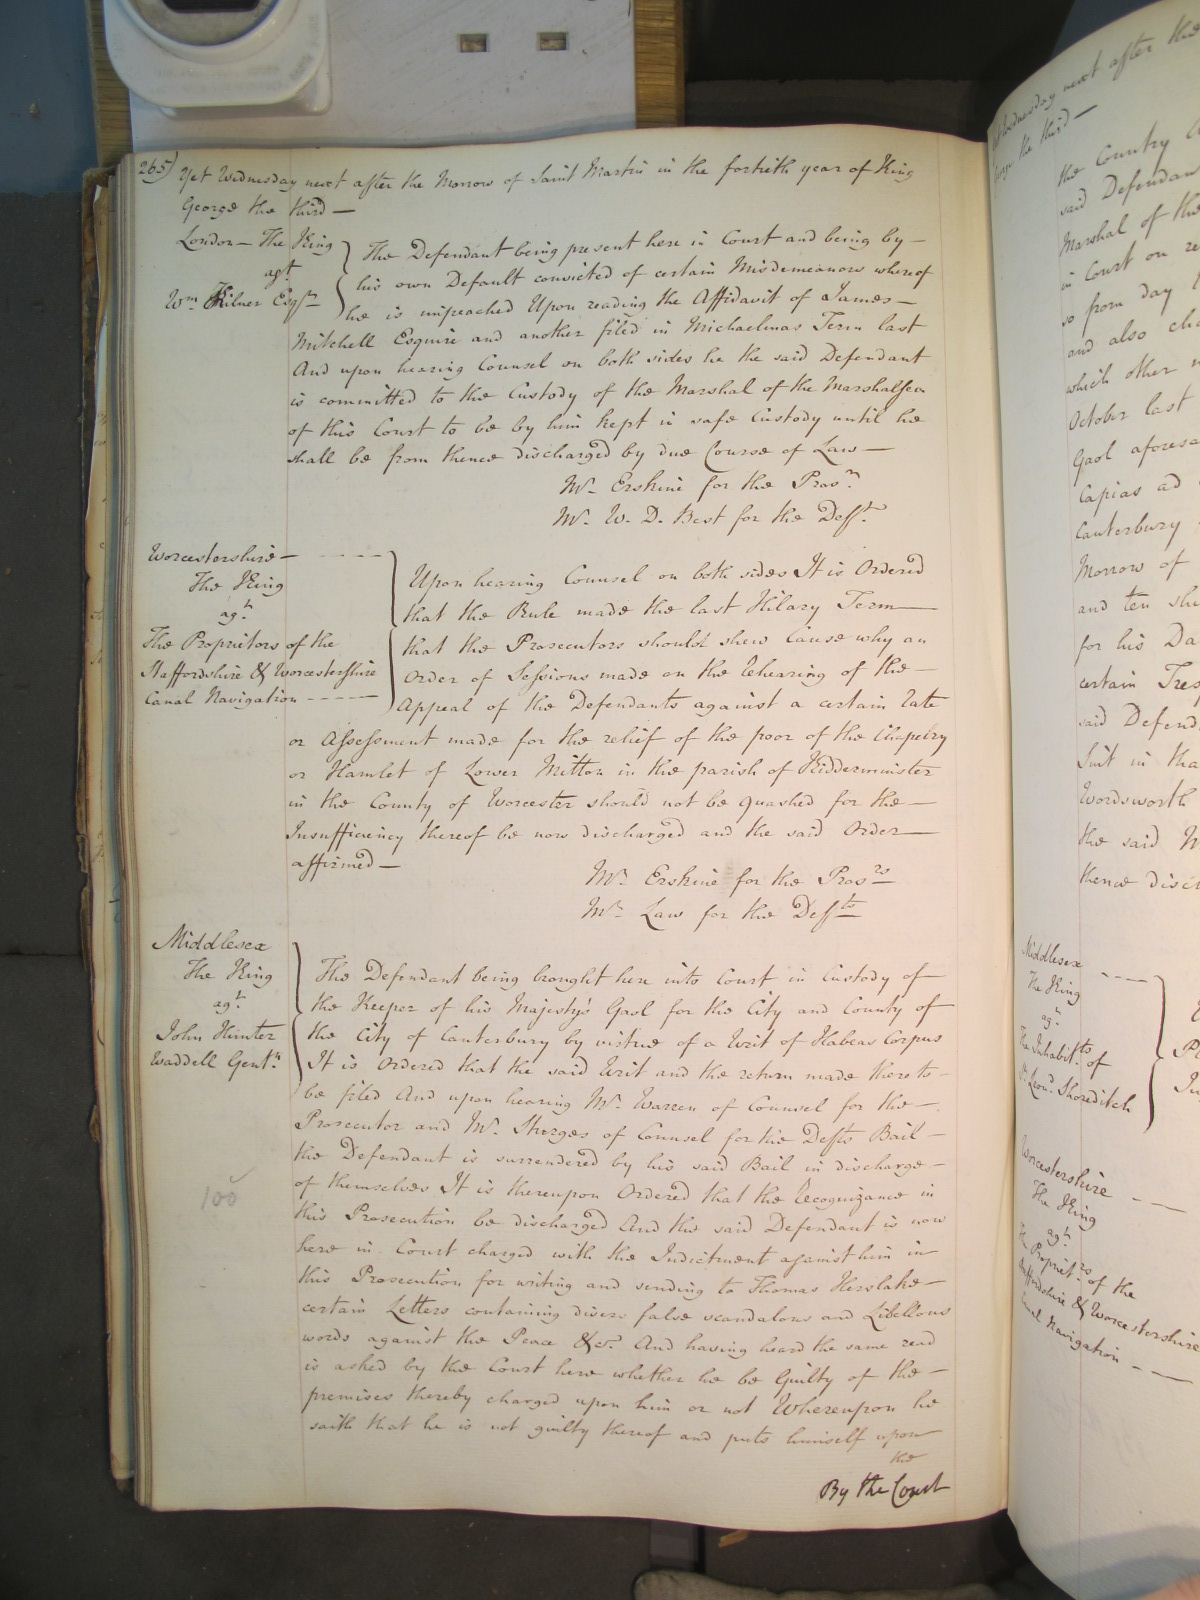 265) Yet Wednesday next after the Morrow of Saint Martin in the fortieth year of King
George the third —
London — The King
agt
Wm Kilner Esqr
The Defendant being present here in Court and being by —
his own Default convicted of certain Misdemeanors whereof
he is impeached Upon reading the Affidavit of James —
Mitchell Esquire and another filed in Michaelmas Term last
And upon hearing Counsel on both sides he the said Defendant
is committed to the Custody of the Marshal of the Marshalsea
of this Court to be by him kept in safe Custody until he
shall be from thence discharged by due Course of Law —
Mr. Erskine for the Prosr.
Mr. W. D. Best for the Defft.
Worcestershire —
The King
agt.
The Proprietors of the
Staffordshire & Worcestershire
Canal Navigation
Upon hearing Counsel on both sides It is Ordered
that the Rule made the last Hilary Term —
that the Prosecutors should shew Cause why an
Order of Sessions made on the rehearing of the —
Appeal of the Defendants against a certain rate
or Assessment made for the relief of the poor of the Chapelry
or Hamlet of Lower Mitton in the parish of Kidderminster
in the County of Worcester should not be quashed for the —
Insufficiency thereof be now discharged and the said Order —
affirmed —
Mr. Erskine for the Prosrs
Mr. Law for the Deffts
Middlesex
The King
agt.
John Hunter
Waddell Gentn.
The Defendant being brought here into Court in Custody of
the Keeper of his Majesty's Gaol for the City and County of
the City of Canterbury by virtue of a Writ of Habeas Corpus
It is Ordered that the said Writ and the return made thereto —
be filed And upon hearing Mr. Warren of Counsel for the —
Prosecutor and Mr. Sturges of Counsel for the Defts Bail —
the Defendant is surrendered by his said Bail in discharge —
of themselves It is thereupon Ordered that the Recognizance in
this Prosecution be discharged And the said Defendant is now
here in Court charged with the Indictment against him in
this Prosecution for writing and sending to Thomas Herslake —
certain Letters containing divers false scandalous and Libellous
words against the Peace &c. And having heard the same read
is asked by the Court here whether he be Guilty of the —
premises thereby charged upon him or not Whereupon he
saith that he is not guilty thereof and puts himself upon
the
By the Court
100
Wednesday next after the
George the third —
the Country
said Defendan
Marshal of the
in Court on re
so from day
and also cha
which other
October last
Gaol aforesa
Capias ad
Canterbury
Morrow of
and ten shi
for his Da
certain Tres
said Defend
Suit in tha
Wordsworth
the said
thence disc
Middlesex
The King
agt.
The Inhabitts of
St. Leond. Shoreditch
Worcestershire
The King
agt.
The Proprietrs of the
Staffordshire & Worcestershire
Canal Navigation